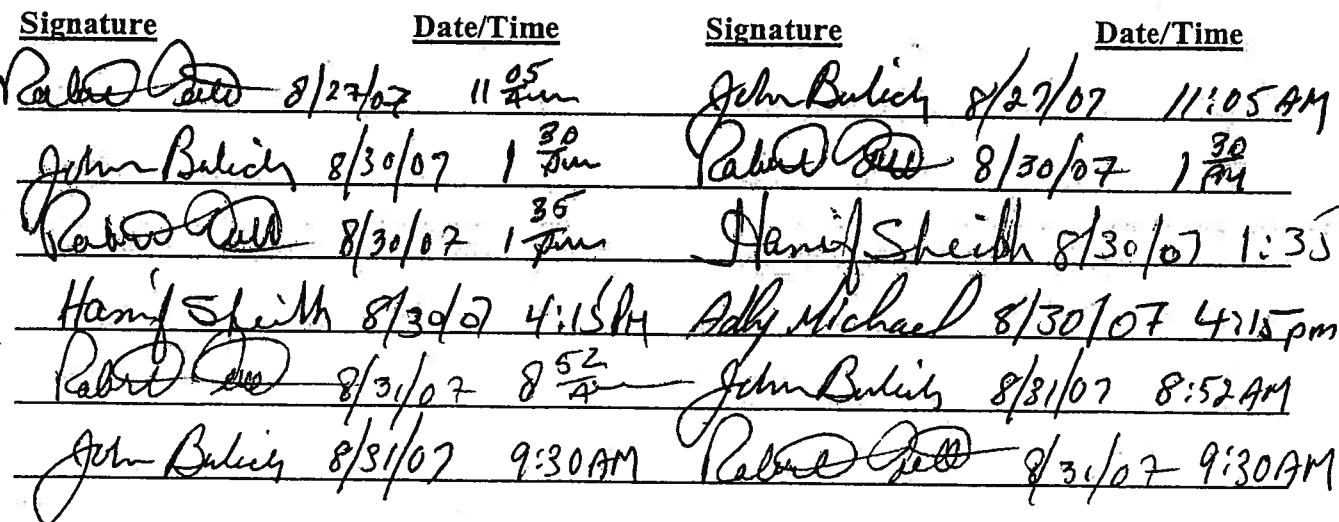 Signature Date/Time Signature Date/Time
Robert 8/27/07 11 05 Am John Bulich 8/27/07 11:05 AM
John Bulich 8/30/07 1 30 Robert 8/30/07 1 30
Robert 8/30/07 1 35 Hanif Sheikh 8/30/07 1:35
Hanif Sheikh 8/30/07 4:15 PM Adly Michael 8/30/07 4:15 pm
Robert 8/31/07 8 52 A John Bulich 8/31/07 8:52 AM
John Bulich 8/31/07 9:30 AM Robert 8/31/07 9:30 AM